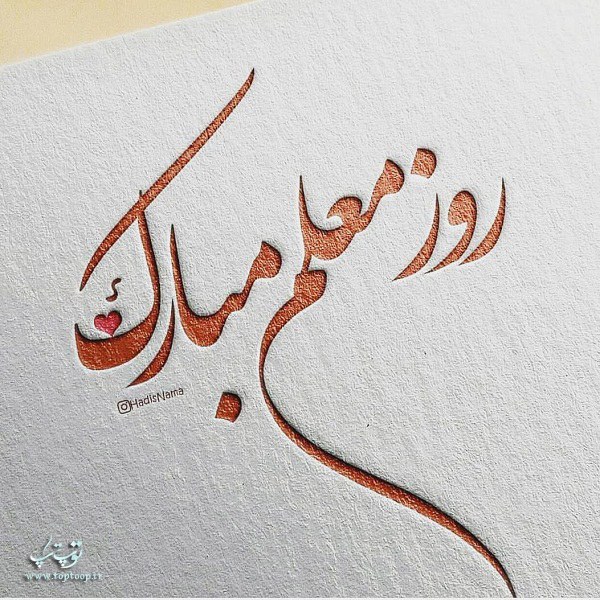 روز معلم مبارک
HadisNama
توپ تاپ
www.toptoop.ir